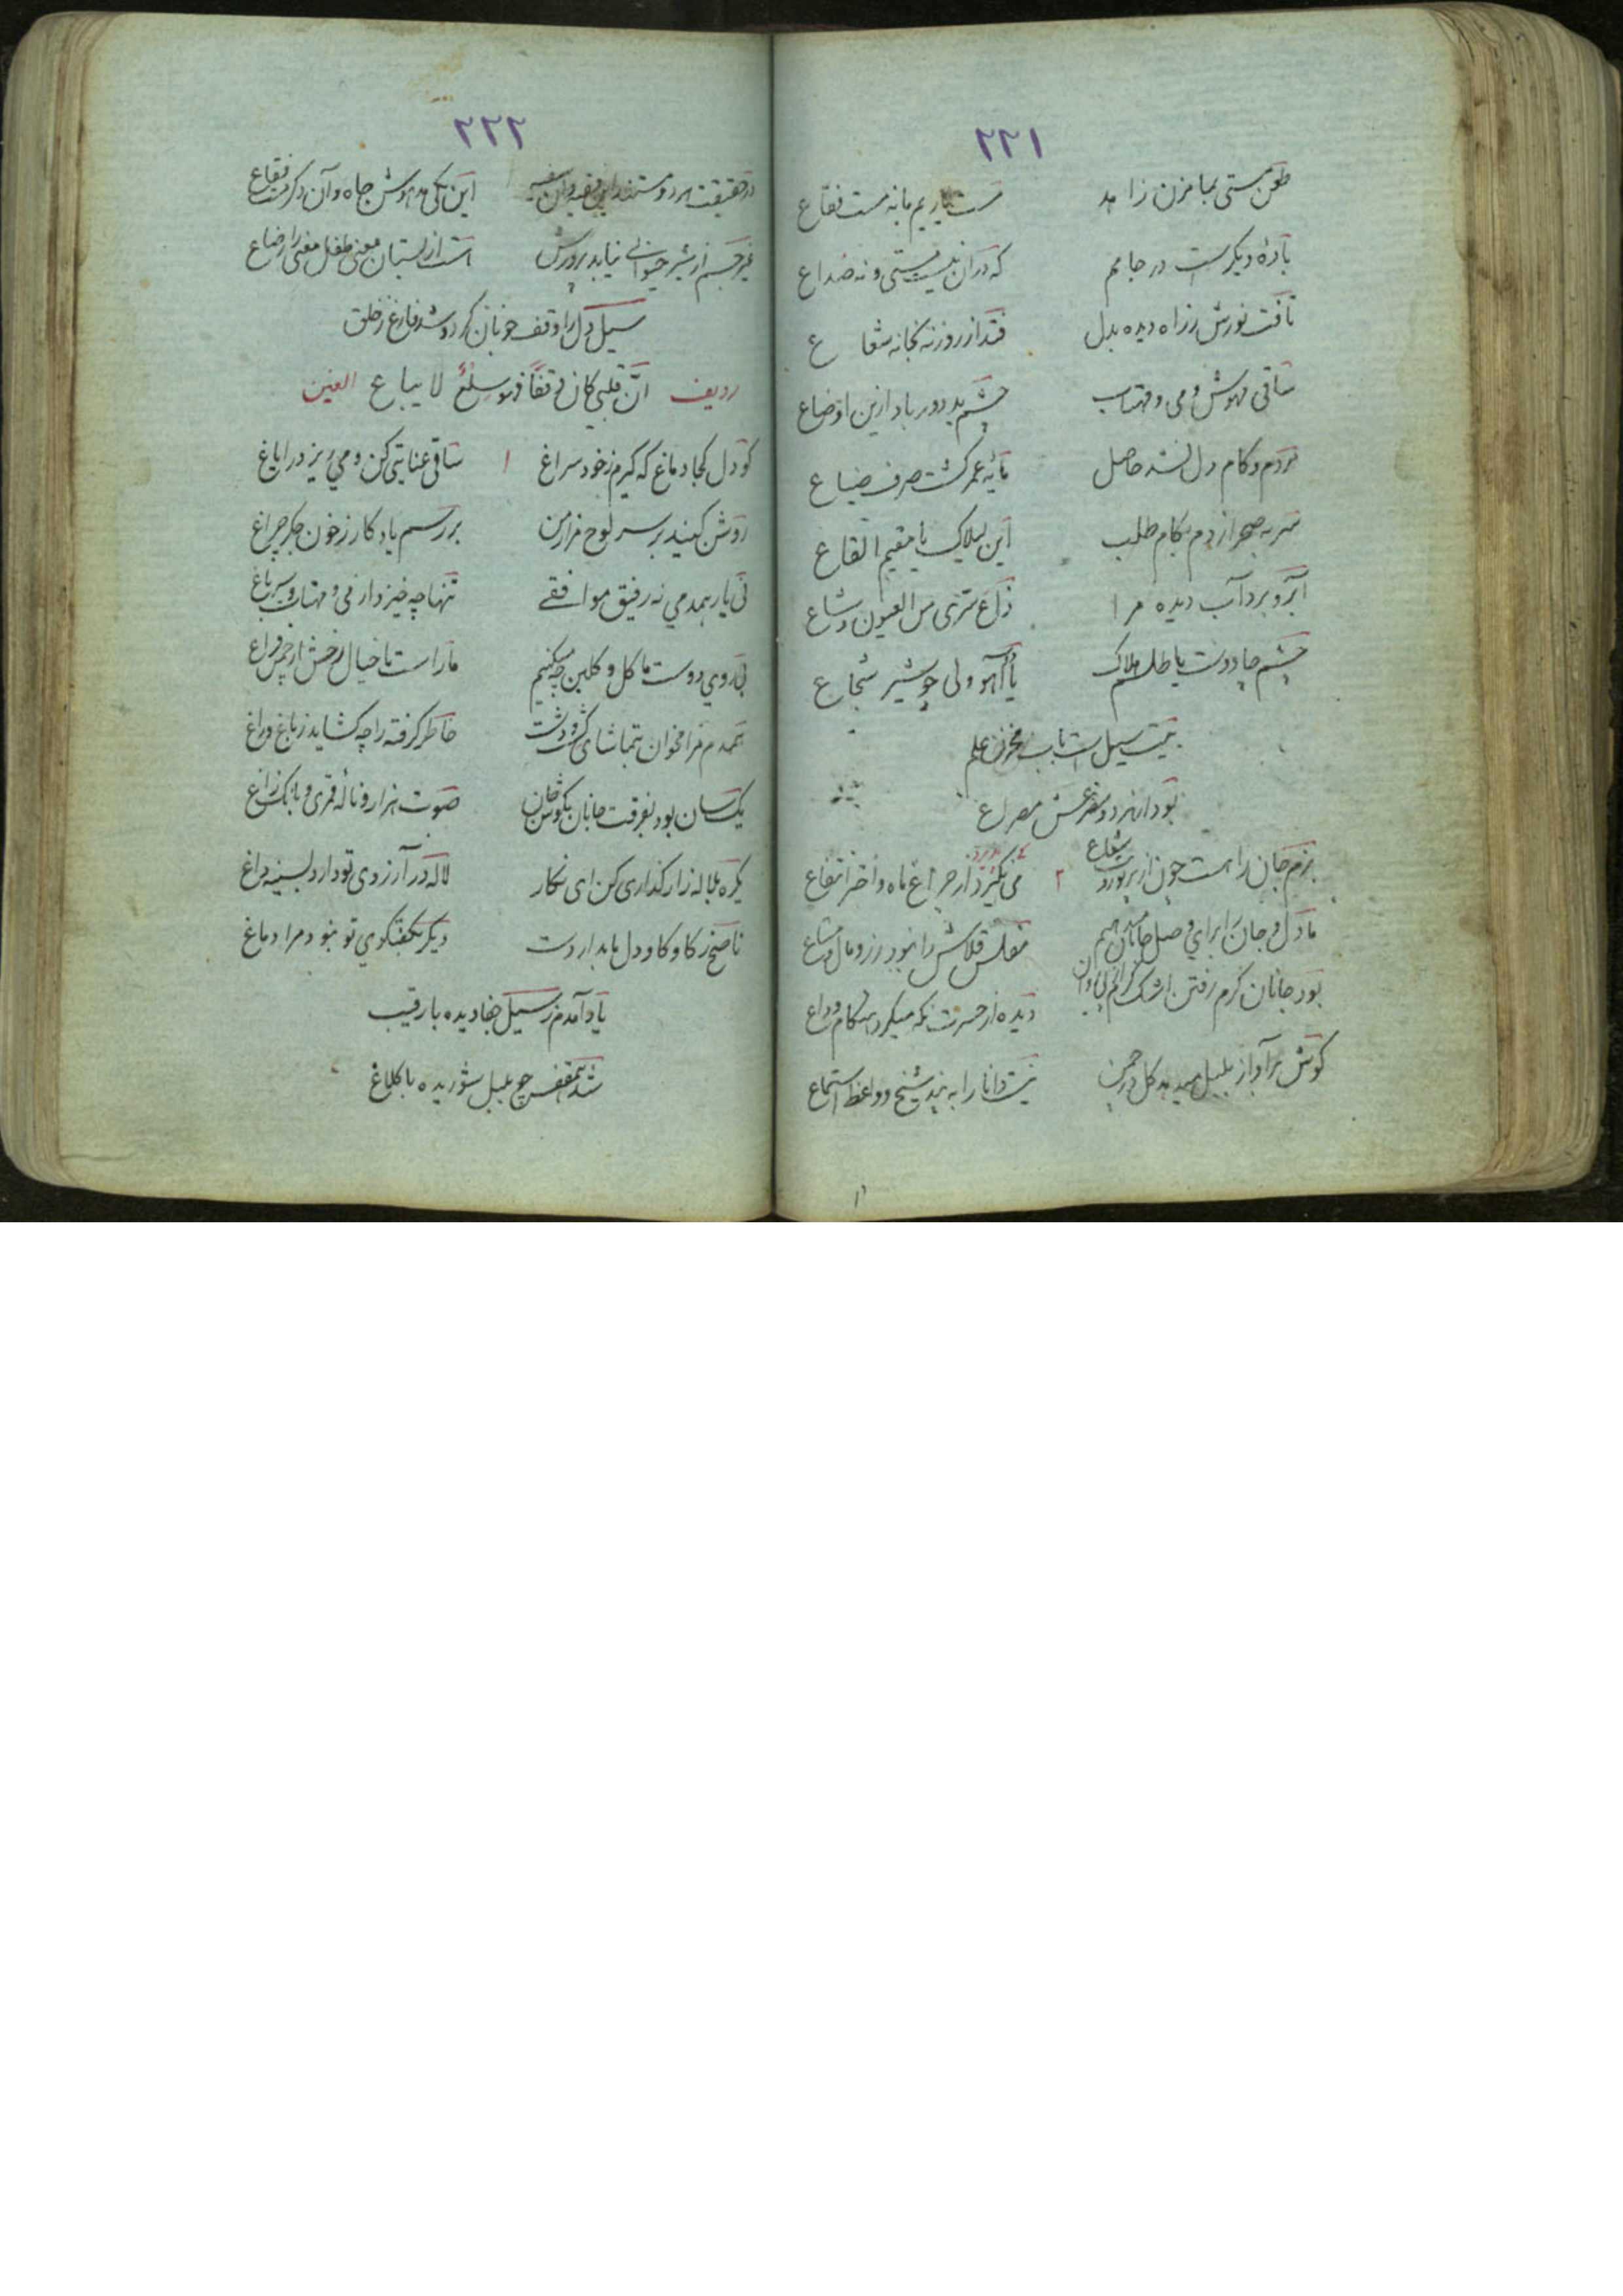 ۲۲۱
طعن مستی بما مزن زاهد مست یاریم ما نه مست فقاع
بادهٔ دیگرست در جامم که در آن نیست مستی و نه صداع
تافت نورش ز راه دیده بدل فتد از روزنه بخانه شعاع
ساقی مهوش و می و مهتاب چشم بد دور باد ازین اوضاع
مردم و کام دل نشد حاصل مایه عمر گشت صرف ضیاع
سر به صحرا زدم بکام طلب این لیلاک یا مقیم القاع
آبرو برد آب دیده مرا ذاع سری من العیون و شاع
چشم جادوت یا طلسم هلاک یا که آهو ولی چو شیر شجاع
نیست سیل باب مخزن علم
بود از هر دو مصرعش مصراع
بزم جان را هست چون از پرتو رویت شعاع ۲ می نگیرد از چراغ ماه و اختر انتفاع
ما دل و جان را برای وصل جانان میدهیم مفلس قلاش را نبود زر و مال و متاع
بود جانان گرم رفتن اشک دیده از حسرت نگه میکرد هنگام وداع
گوش بر آواز بلبل میدهد گل در چمن نیست دانا را به پند شیخ و واعظ استماع
۲۲۲
در حقیقت هر دو مستند این فقیه و آن سفیه این یکی مدهوش جاه و آن دگر مست فقاع
غیر جسم از شیر حیوانی نیابد پرورش است از پستان معنی طفل معنی را رضاع
سیل دل را وقف خوبان کرد و شد فارغ ز خلق
ردیف انّ قلبی کان وقفًا فهو سلعٌ لا یباع الغین
کو دل کجا دماغ که گیرم ز خود سراغ ۱ ساقی عنایتی کن و می ریز در ایاغ
روشن کنید بر سر لوح مزار من بر رسم یادگار ز خون جگر چراغ
نی یار همدمی نه رفیق موافقی تنها چه خیزد از می و مهتاب و سیر باغ
بی روی دوست ما گل و گلبن چه میکنیم ما راست با خیال رخش از چمن فراغ
همدم مرا مخوان بتماشای کشت و دشت خاطر گرفته را چه گشاید ز باغ و راغ
یکسان بود بفرقت جانان بگوش جان صوت هزار و نالهٔ قمری و بانگ زاغ
یکره بلاله زار گذاری کن ای نگار لاله در آرزوی تو دارد بسینه داغ
ناصح ز کاو کاو دل ما بدار دست دیگر بگفتگوی تو نبود مرا دماغ
یاد آمدم ز سیل جفا دیده با رقیب
شد همقفس چو بلبل شوریده با کلاغ